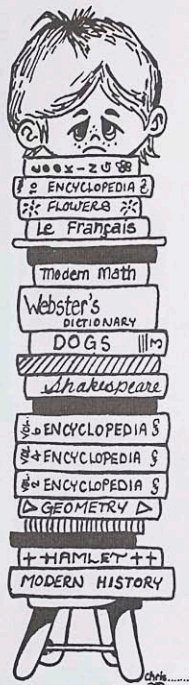 COOKING
ENCYCLOPEDIA
FLOWERS
Le Français
Modern Math
Webster's
DICTIONARY
DOGS
Shakespeare
VOL. 6 ENCYCLOPEDIA
VOL. 4 ENCYCLOPEDIA
VOL. 2 ENCYCLOPEDIA
GEOMETRY
++HAMLET++
MODERN HISTORY
chris........